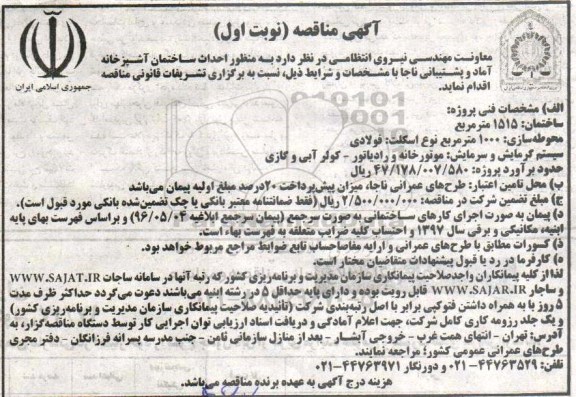 آگهی مناقصه (نوبت اول)
جمهوری اسلامی ایران
معاونت مهندسی نیروی انتظامی در نظر دارد به منظور احداث ساختمان آشپزخانه
آماد و پشتیبانی ناجا با مشخصات و شرایط ذیل، نسبت به برگزاری تشریفات قانونی مناقصه
اقدام نماید.
الف) مشخصات فنی پروژه:
ساختمان: ۱۵۱۵ مترمربع
محوطه‌سازی: ۱۰۰۰ مترمربع نوع اسکلت: فولادی
سیستم گرمایش و سرمایش: موتورخانه و رادیاتور - کولر آبی و گازی
حدود برآورد پروژه: ۴۷/۱۷۸/۰۰۷/۵۸۰ ریال
ب) محل تامین اعتبار: طرح‌های عمرانی ناجا، میزان پیش‌پرداخت ۲۰درصد مبلغ اولیه پیمان می‌باشد
ج) مبلغ تضمین شرکت در مناقصه: ۲/۵۰۰/۰۰۰/۰۰۰ ریال (فقط ضمانتنامه معتبر بانکی یا چک تضمین‌شده بانکی مورد قبول است).
د) پیمان به صورت اجرای کارهای ساختمانی به صورت سرجمع (پیمان سرجمع ابلاغیه ۹۶/۰۵/۰۴) و براساس فهرست بهای پایه
ابنیه، مکانیکی و برقی سال ۱۳۹۷ و احتساب کلیه ضرایب متعلقه به فهرست بهاء، است.
ذ) کسورات مطابق با طرح‌های عمرانی و ارایه مفاصاحساب تابع ضوابط مراجع مربوط خواهد بود.
ه) کارفرما در رد یا قبول پیشنهادات متقاضیان مختار است.
لذا از کلیه پیمانکاران واجدصلاحیت پیمانکاری سازمان مدیریت و برنامه‌ریزی کشور که رتبه آنها در سامانه ساجات WWW.SAJAT.IR
و ساجار WWW.SAJAR.IR قابل رویت بوده و دارای پایه حداقل ۵ رشته ابنیه می‌باشند دعوت می‌گردد حداکثر ظرف مدت
۵ روز با به همراه داشتن فتوکپی برابر با اصل رتبه‌بندی شرکت (تائیدیه صلاحیت پیمانکاری سازمان مدیریت و برنامه‌ریزی کشور)
و یک جلد رزومه کاری کامل شرکت، جهت اعلام آمادگی و دریافت اسناد ارزیابی توان اجرایی کار توسط دستگاه مناقصه‌گزار، به
آدرس: تهران - انتهای همت غرب - خروجی آبشار - بعد از منازل سازمانی ثامن - جنب مدرسه پسرانه فرزانگان - دفتر مجری
طرح‌های عمرانی عمومی کشور؛ مراجعه نمایند.
تلفن: ۴۴۷۶۳۵۲۹-۰۲۱ و دورنگار ۴۴۷۶۳۹۷۱-۰۲۱
هزینه درج آگهی به عهده برنده مناقصه می‌باشد.